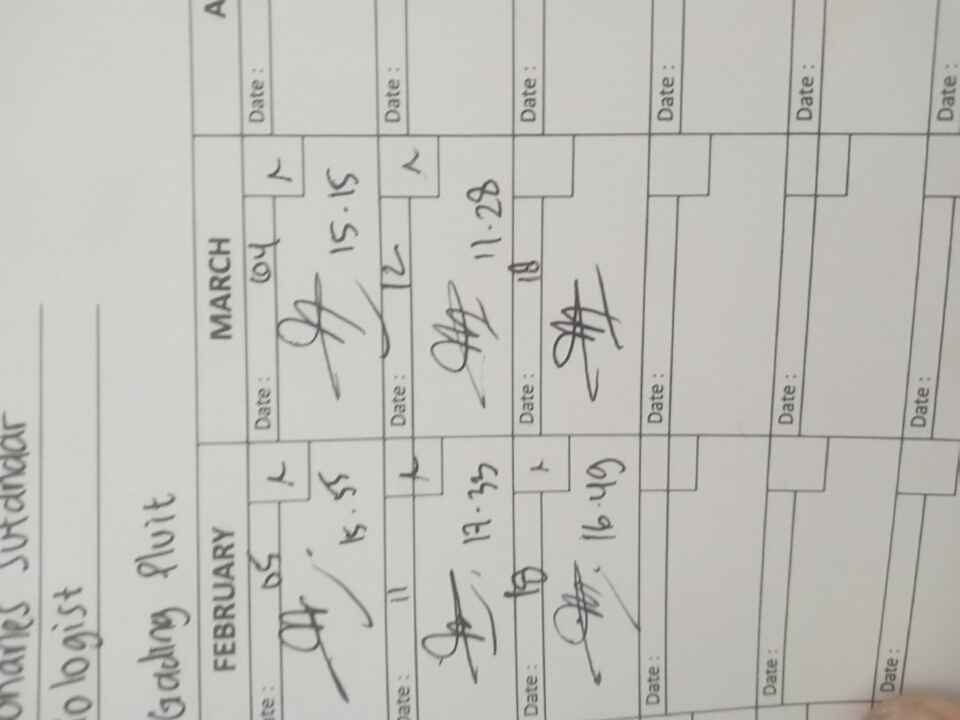 Sutandar
ologist
Gading Pluit
FEBRUARY MARCH A
Date: 05 Date: 04 Date:
15.55 15.15
Date: 11 Date: 12 Date:
17.33 11.28
Date: Date: 18 Date:
16.49
Date: Date: Date:
Date: Date: Date:
Date: Date: Date: